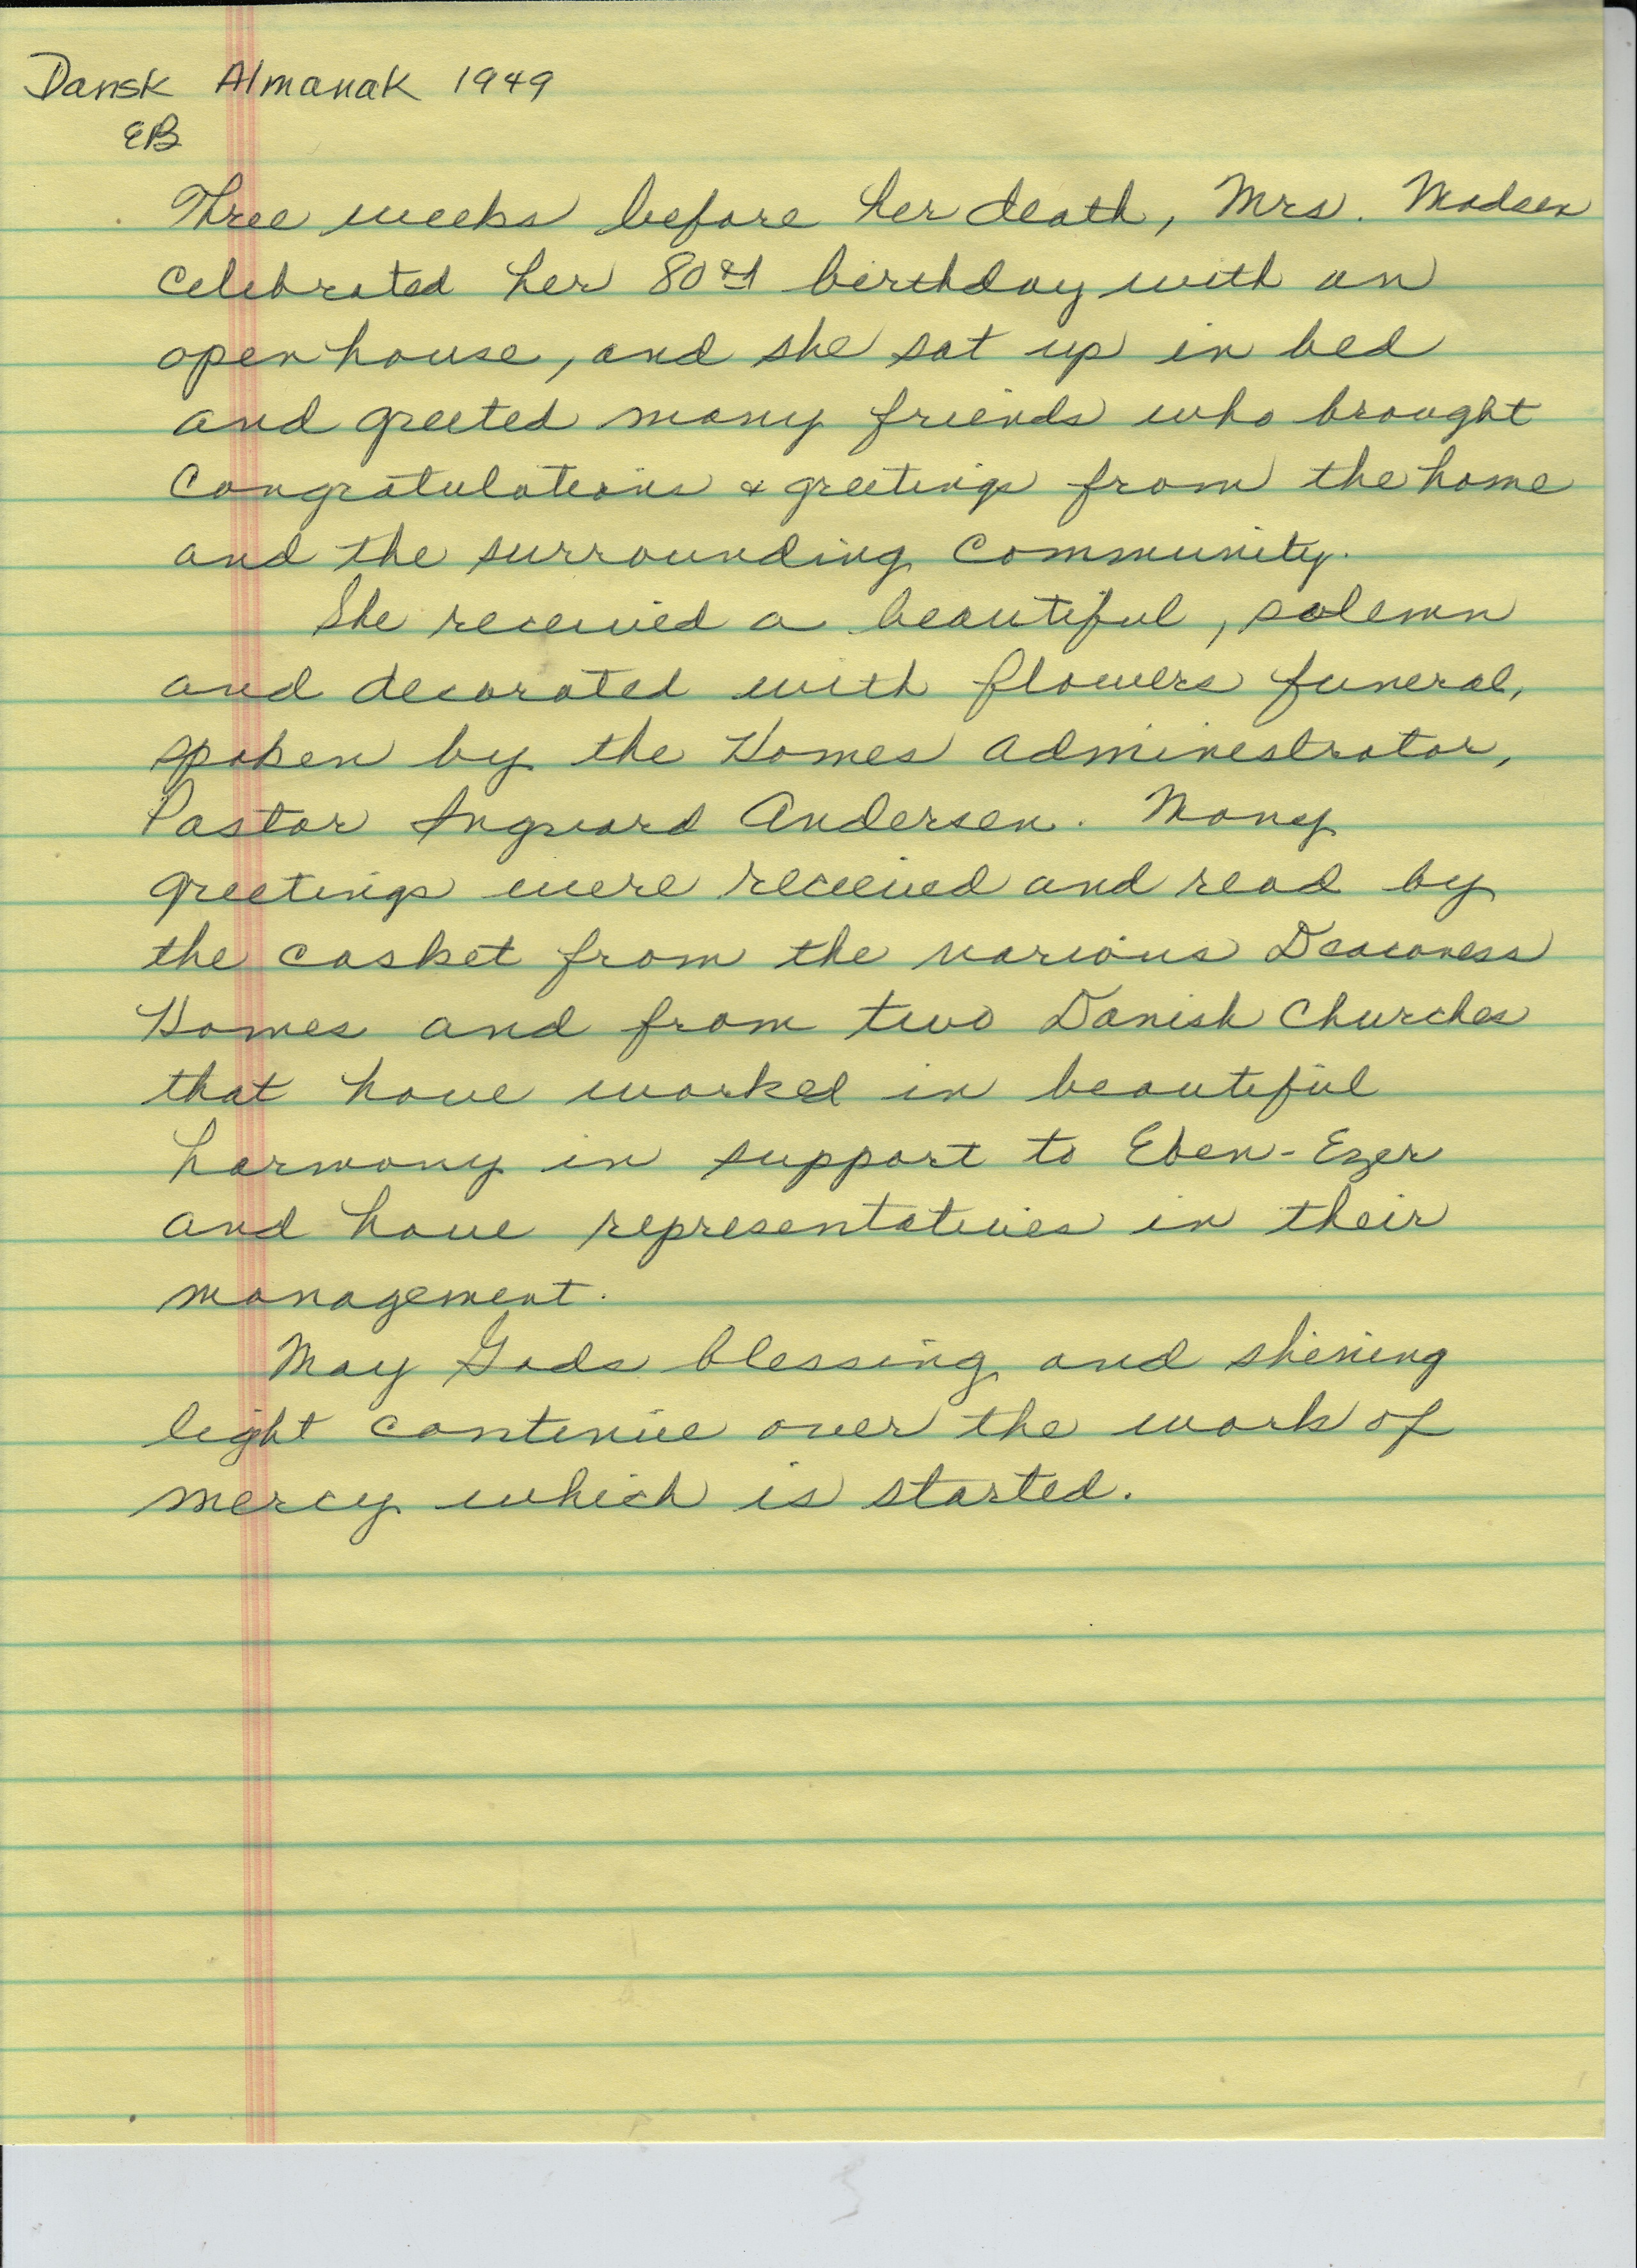 Dansk Almanak 1949
EB
Three weeks before her death, Mrs. Madsen
celebrated her 80th birthday with an
open house, and she sat up in bed
and greeted many friends who brought
congratulations & greetings from the home
and the surrounding community.
She received a beautiful, solemn
and decorated with flowers funeral,
spoken by the Homes administrator,
Pastor Ingvard Andersen. Many
greetings were received and read by
the casket from the various Deaconess
Homes and from two Danish Churches
that have worked in beautiful
harmony in support to Eben-Ezer
and have representatives in their
management.
May Gods blessing and shining
light continue over the work of
mercy which is started.